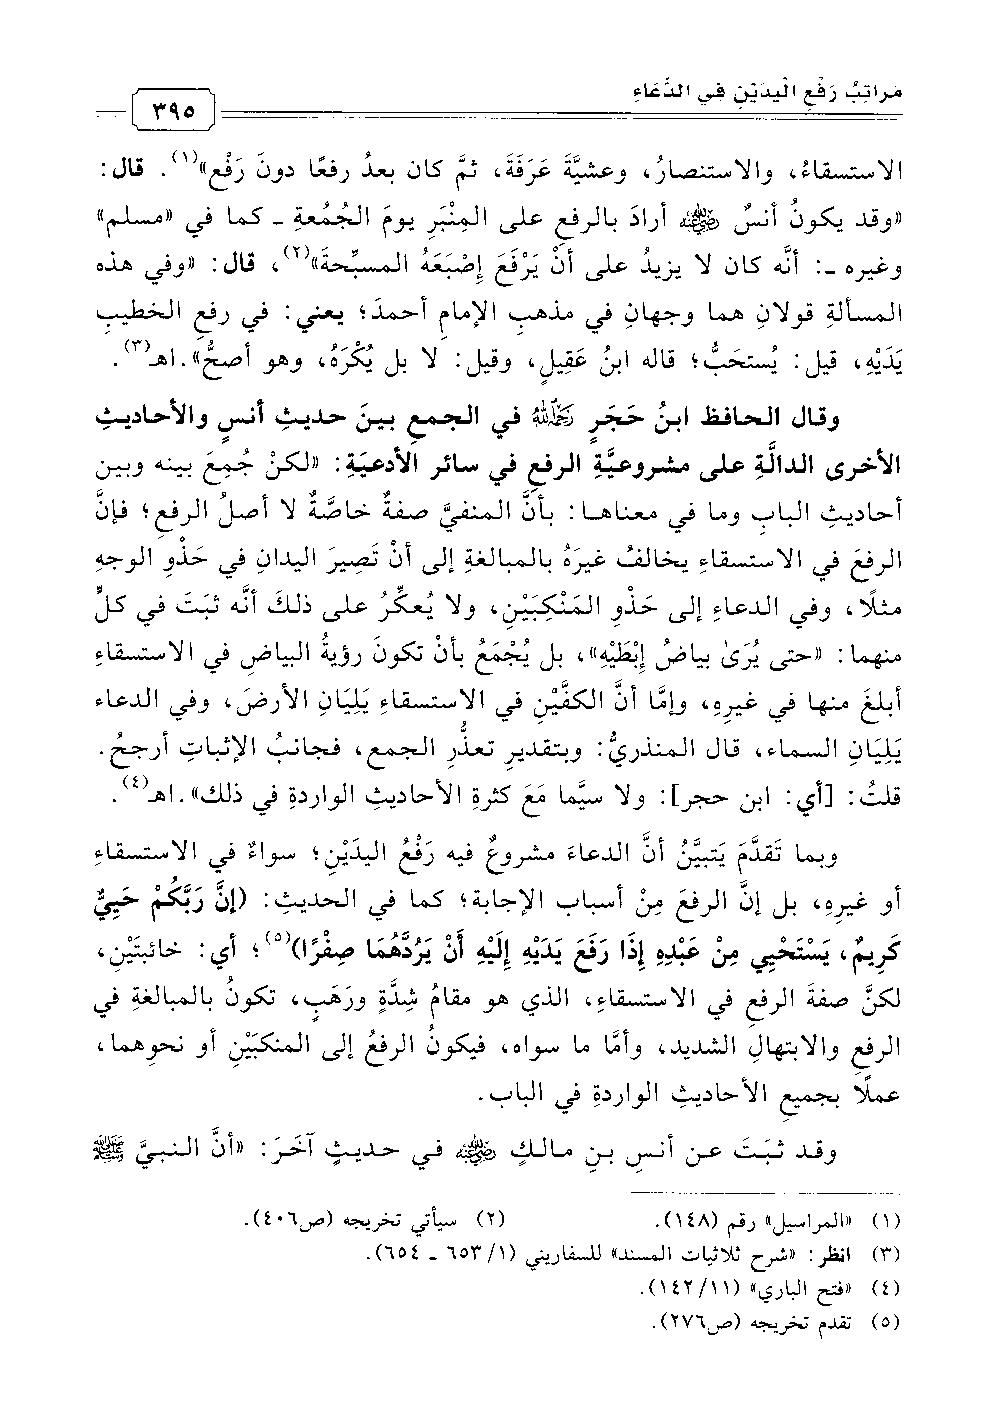 مَراتِبُ رَفْعِ الْيدَيْنِ في الدُّعَاءِ
٣٩٥
الاستسقاءُ، والاستنصارُ، وعشيَّةَ عَرَفَةَ، ثمَّ كان بعدُ رفعًا دونَ رَفْعٍ»(١). قال:
«وقد يكونُ أنسٌ رضي الله عنه أرادَ بالرفعِ على المِنْبَرِ يومَ الجُمُعةِ ـ كما في «مسلم»
وغيره ـ: أنَّه كان لا يزيدُ على أنْ يَرْفَعَ إِصْبَعَهُ المسبِّحةَ»(٢)، قال: «وفي هذه
المسألةِ قولانِ هما وجهانِ في مذهبِ الإمامِ أحمدَ؛ يعني: في رفعِ الخطيبِ
يَدَيْهِ، قيل: يُستحَبُّ؛ قاله ابنُ عَقِيلٍ، وقيل: لا بل يُكْرَهُ، وهو أصحُّ».اهـ(٣).
وقال الحافظ ابنُ حَجَرٍ رحمه الله في الجمعِ بينَ حديثِ أنسٍ والأحاديثِ
الأخرى الدالَّةِ على مشروعيَّةِ الرفعِ في سائر الأدعيَةِ: «لكنْ جُمِعَ بينه وبين
أحاديثِ البابِ وما في معناها: بأنَّ المنفيَّ صفةٌ خاصَّةٌ لا أصلُ الرفعِ؛ فإنَّ
الرفعَ في الاستسقاءِ يخالفُ غيرَهُ بالمبالغةِ إلى أنْ تَصِيرَ اليدانِ في حَذْوِ الوجهِ
مثلًا، وفي الدعاءِ إلى حَذْوِ المَنْكِبَيْنِ، ولا يُعكِّرُ على ذلكَ أنَّه ثبَتَ في كلٍّ
منهما: «حتى يُرَىٰ بياضُ إِبْطَيْهِ»، بل يُجْمَعُ بأنْ تكونَ رؤيةُ البياضِ في الاستسقاءِ
أبلغَ منها في غيرِهِ، وإمَّا أنَّ الكفَّيْنِ في الاستسقاءِ يَلِيَانِ الأرضَ، وفي الدعاء
يَلِيَانِ السماء، قال المنذريُّ: وبتقديرِ تعذُّرِ الجمعِ، فجانبُ الإثباتِ أرجحُ.
قلتُ: [أي: ابن حجر]: ولا سيَّما مَعَ كثرةِ الأحاديثِ الواردةِ في ذلك».اهـ(٤).
وبما تَقدَّمَ يَتبيَّنُ أنَّ الدعاءَ مشروعٌ فيه رَفْعُ اليدَيْنِ؛ سواءٌ في الاستسقاءِ
أو غيرِهِ، بل إنَّ الرفعَ مِنْ أسبابِ الإجابة؛ كما في الحديثِ: (إِنَّ رَبَّكُمْ حَيِيٌّ
كَرِيمٌ، يَسْتَحْيِي مِنْ عَبْدِهِ إِذَا رَفَعَ يَدَيْهِ إِلَيْهِ أَنْ يَرُدَّهُمَا صِفْرًا)(٥)؛ أي: خائبتَيْنِ،
لكنَّ صفةَ الرفعِ في الاستسقاءِ، الذي هو مقامُ شِدَّةٍ ورَهَبٍ، تكونُ بالمبالغةِ في
الرفعِ والابتهالِ الشديد، وأمَّا ما سواه، فيكونُ الرفعُ إلى المنكبَيْنِ أو نحوِهما،
عملًا بجميعِ الأحاديثِ الواردةِ في الباب.
وقد ثبَتَ عن أنسِ بنِ مالكٍ رضي الله عنه في حديثٍ آخَرَ: «أنَّ النبيَّ ﷺ
(١) «المراسيل» رقم (١٤٨). (٢) سيأتي تخريجه (ص٤٠٦).
(٣) انظر: «شرح ثلاثيات المسند» للسفاريني (١/ ٦٥٣ ـ ٦٥٤).
(٤) «فتح الباري» (١١/ ١٤٢).
(٥) تقدم تخريجه (ص٢٧٦).